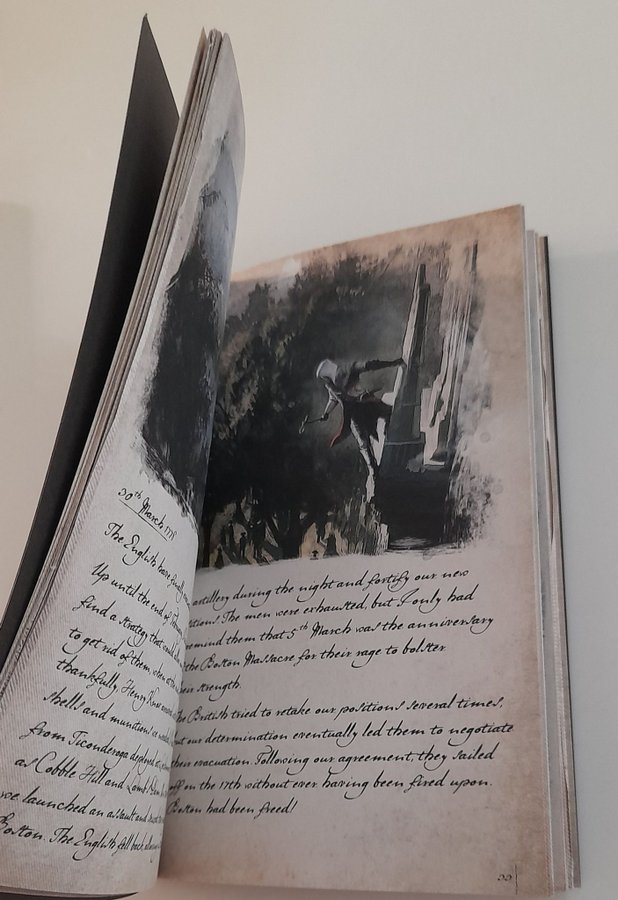 30th March 1776
The English have finally
Up until the end of
find a strategy that would
to get rid of them, when
thankfully, Henry Knox
shells and munitions
from Ticonderoga deployed
as Cobble Hill and Lamb's
we launched an assault and
Boston. The English fell back,
artillery during the night and fortify our new
The men were exhausted, but I only had
remind them that 5th March was the anniversary
the Boston Massacre for their rage to bolster
strength.
The British tried to retake our positions several times,
but our determination eventually led them to negotiate
their evacuation. Following our agreement, they sailed
off on the 17th without ever having been fired upon.
Boston had been freed!